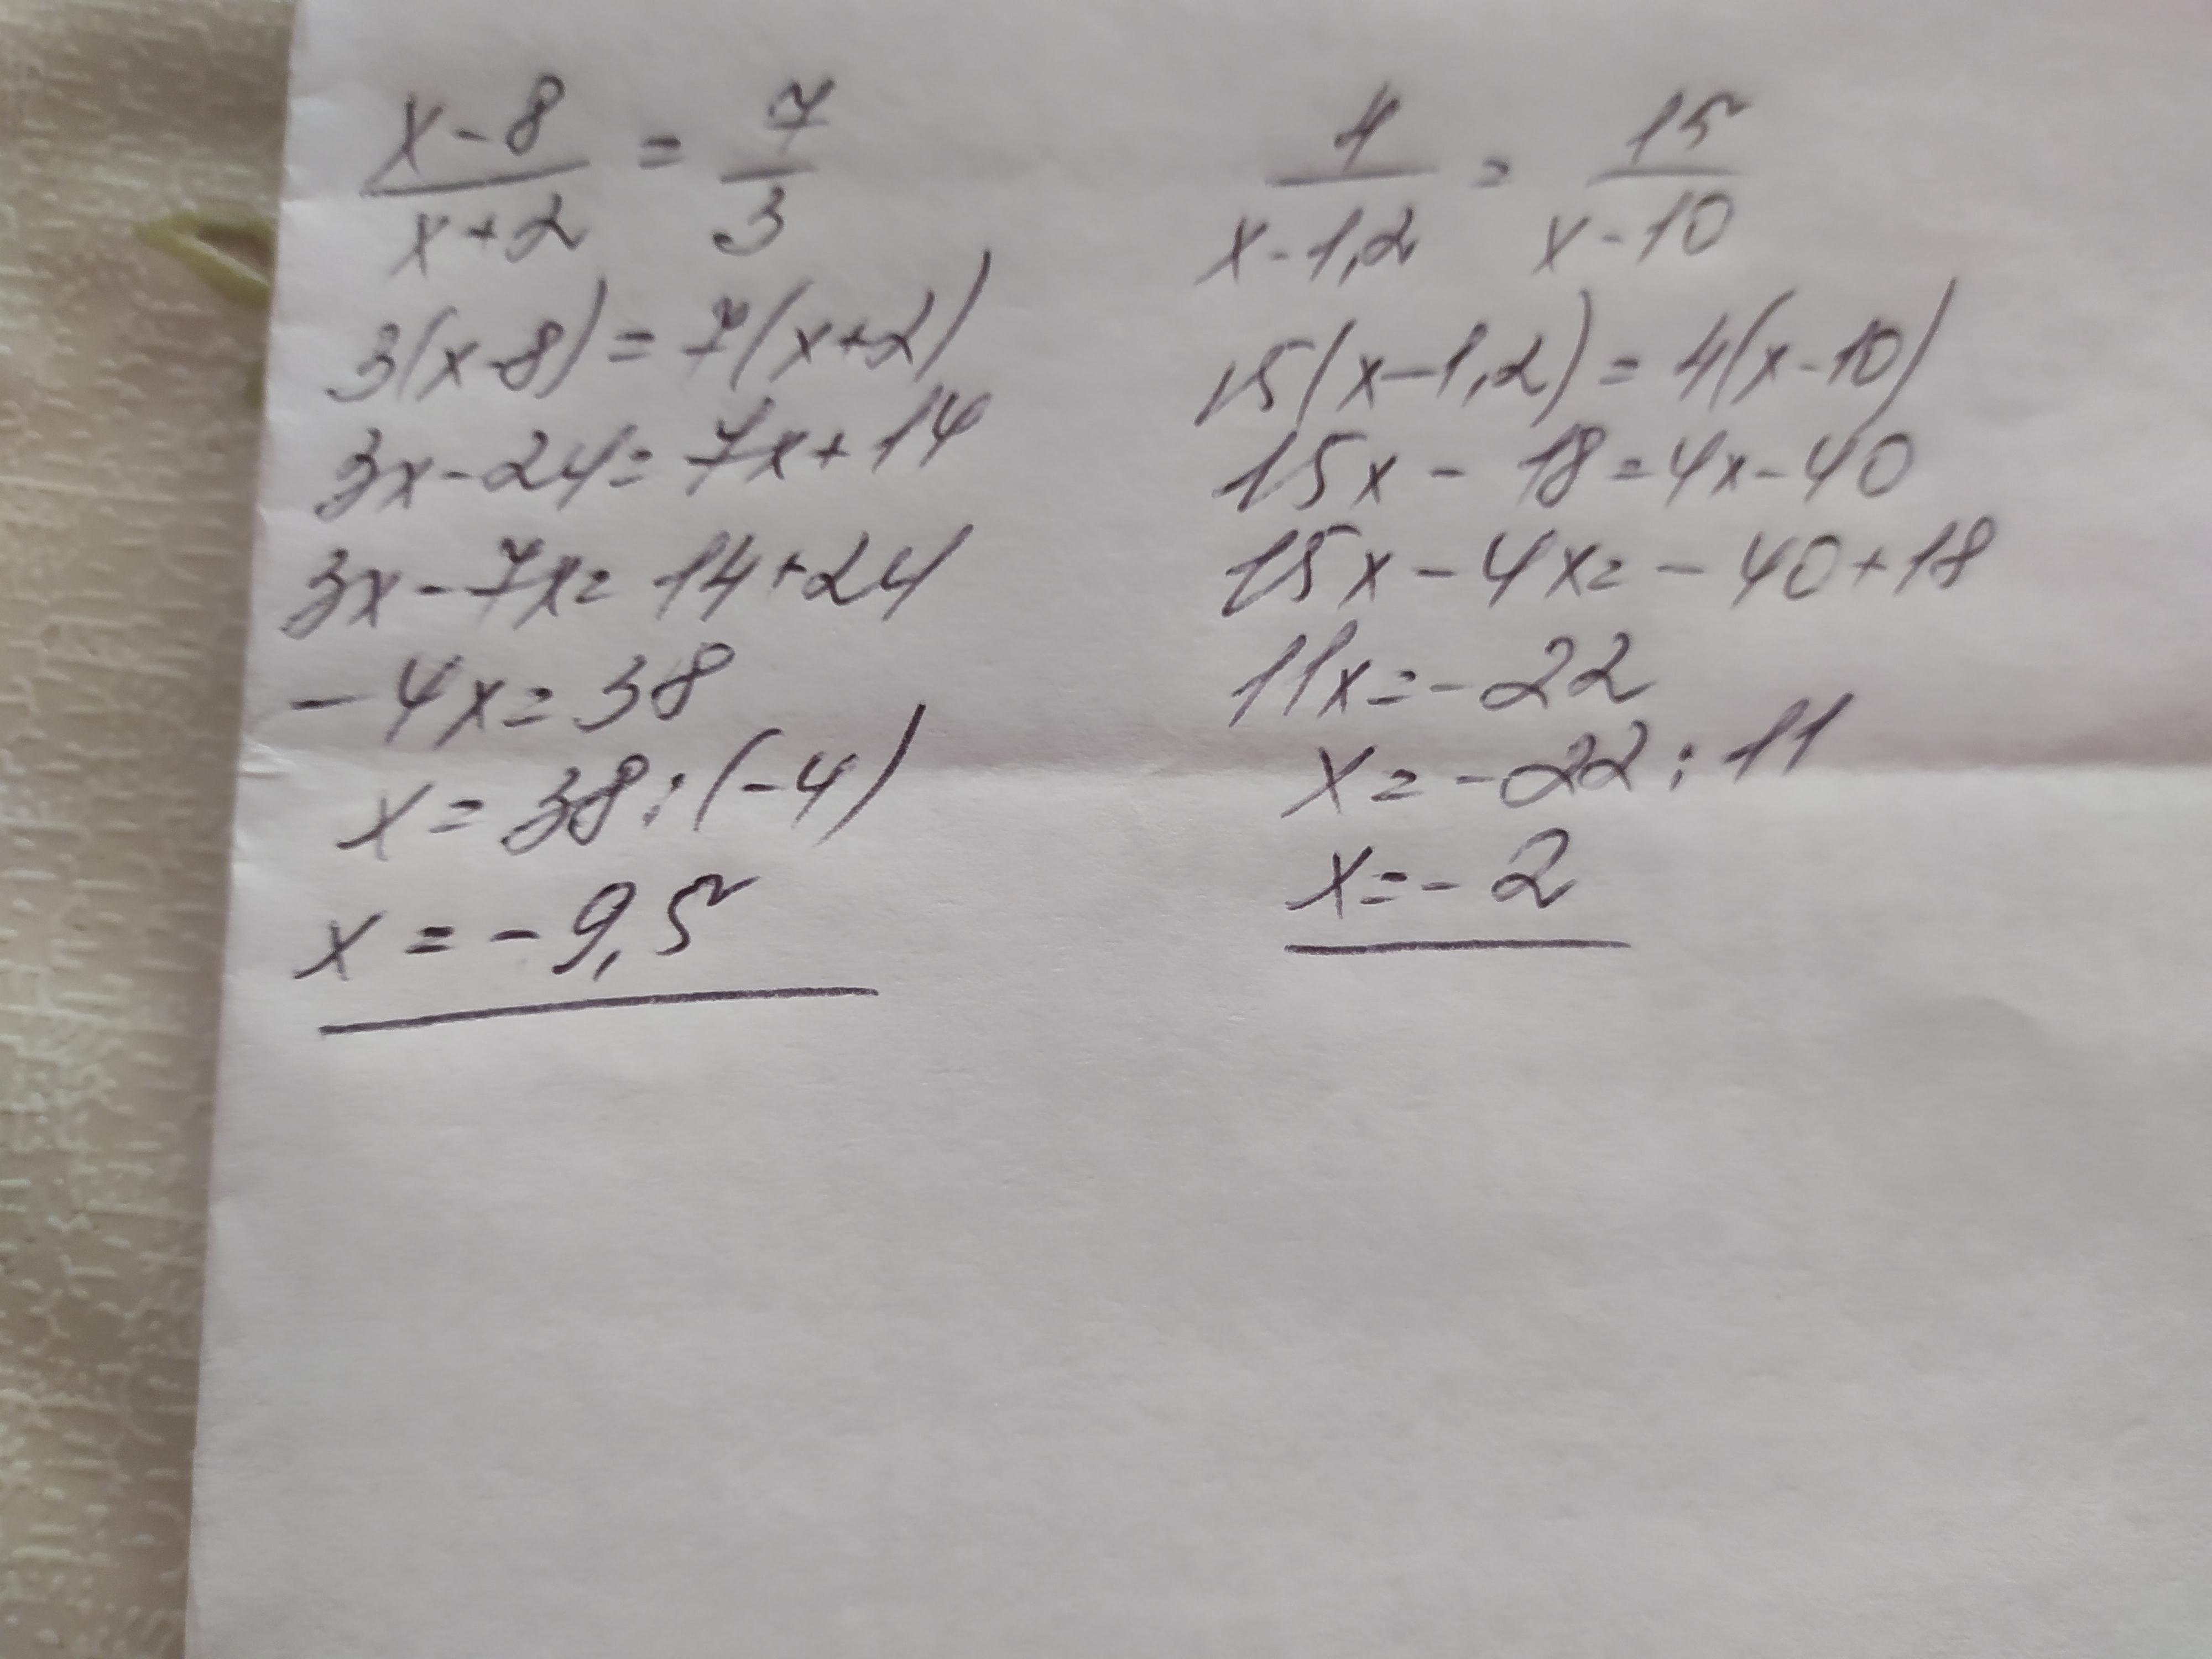 x-8/x+2 = 7/3
3(x-8) = 7(x+2)
3x-24 = 7x+14
3x-7x = 14+24
-4x = 38
x = 38:(-4)
x = -9,5
4/x-1,2 = 15/x-10
15(x-1,2) = 4(x-10)
15x - 18 = 4x-40
15x-4x = -40+18
11x = -22
x = -22:11
x = -2